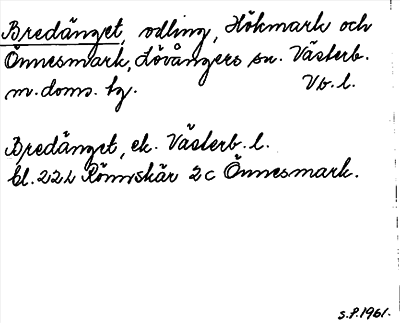 Bredänget, odling, Hökmark och
Önnesmark, Lövångers sn. Västerb.
m.doms. tg. Vb. l.
Bredänget, ek. Västerb. l.
bl. 22L Rönnskär 2c Önnesmark.
S.P. 1961.